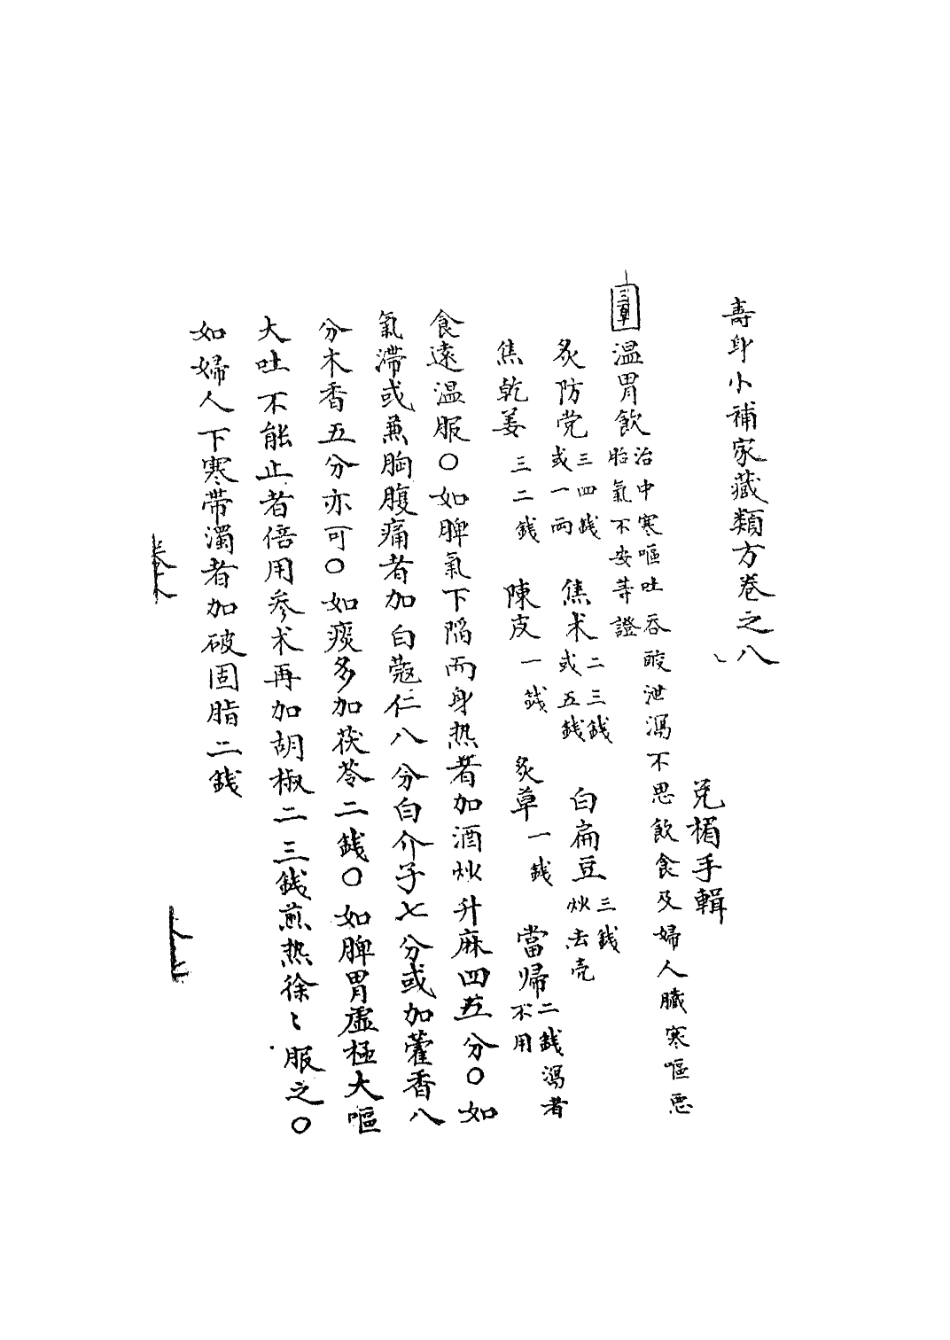 壽身小補家藏類方卷之八
兑楣手輯
溫胃飲治中寒嘔吐吞酸泄瀉不思飲食及婦人臟寒嘔惡胎氣不安等證
炙防党三四錢或一兩 焦术二三錢或五錢 白扁豆三錢炒去壳
焦乾姜三二錢 陳皮一錢 炙草一錢 當歸二錢瀉者不用
食遠溫服〇如脾氣下陷而身热者加酒炒升麻四五分〇如
氣滯或兼胸腹痛者加白蔻仁八分白介子七分或加藿香八
分木香五分亦可〇如痰多加茯苓二錢〇如脾胃虛極大嘔
大吐不能止者倍用参术再加胡椒二三錢煎热徐〻服之〇
如婦人下寒带濁者加破固脂二錢